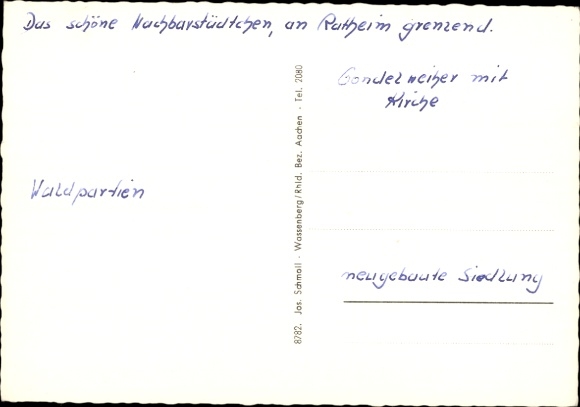 Das schöne Nachbarstädtchen, an Ratheim grenzend.
Gondelweiher mit
Kirche
Waldpartien
neugebaute Siedlung
8782. Jos. Schmall · Wassenberg/Rhld. Bez. Aachen · Tel. 2080